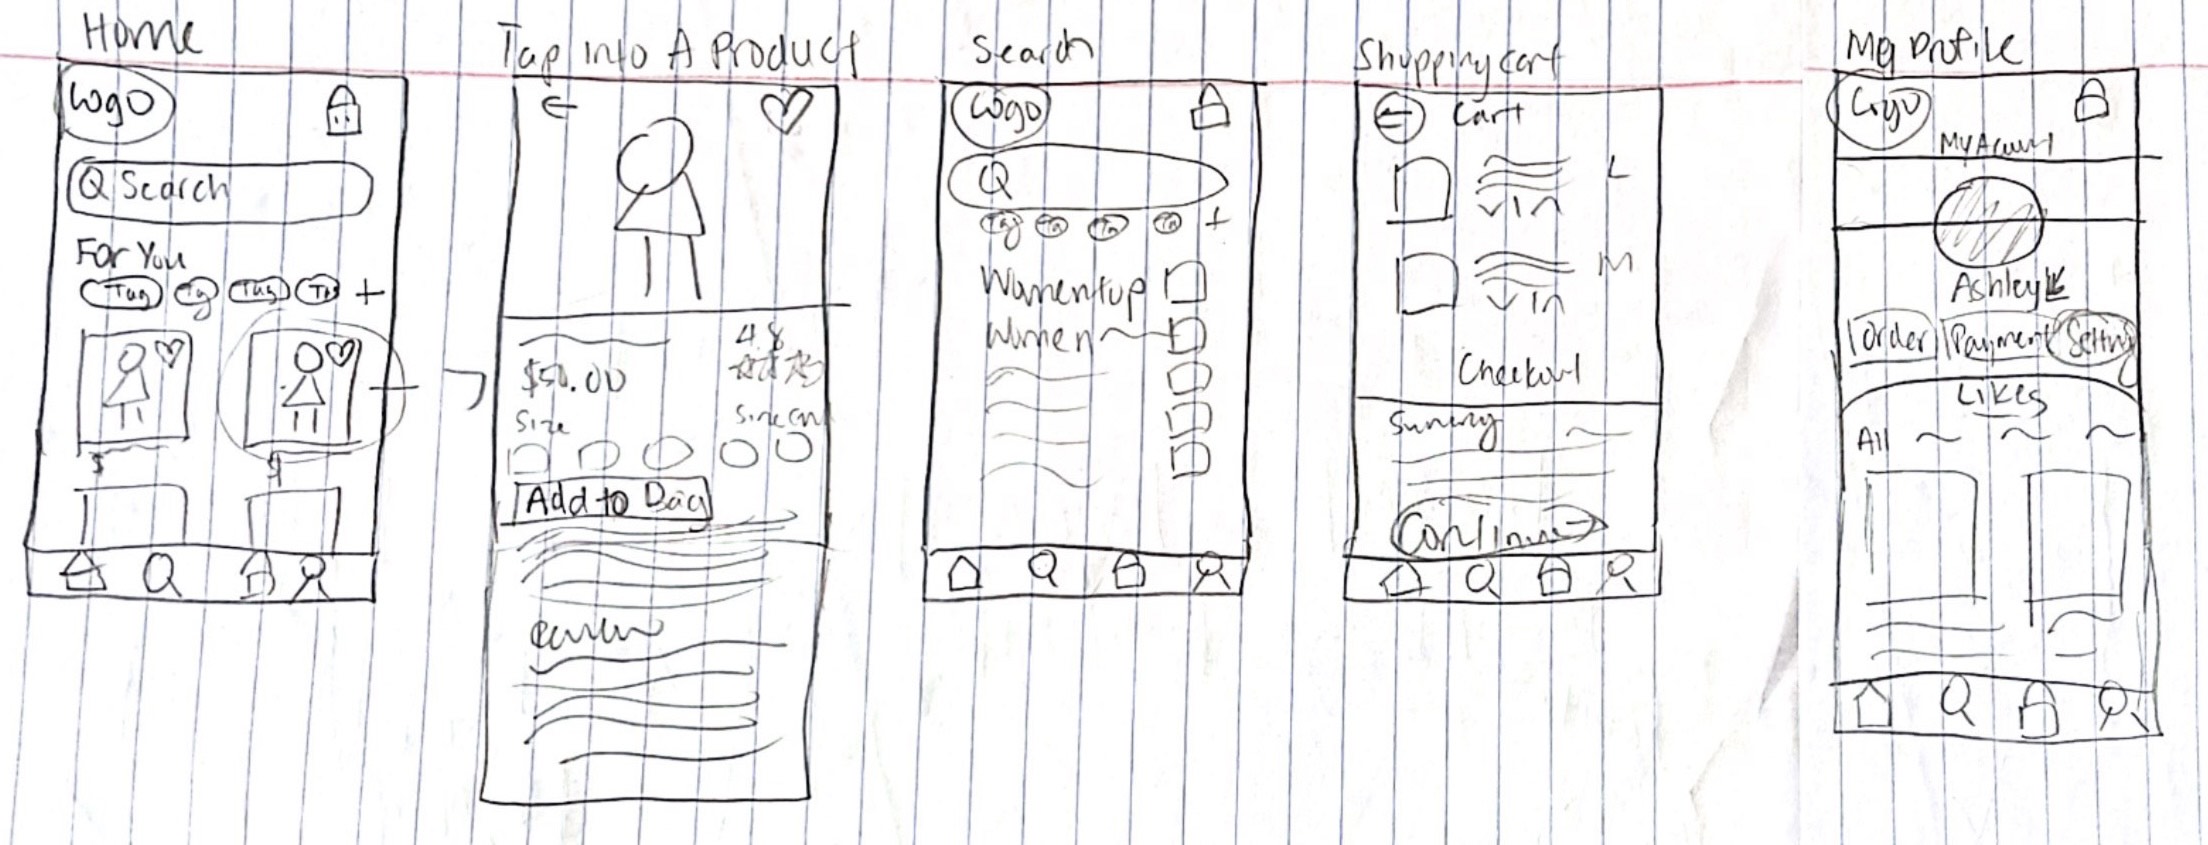 Home
Logo
Search
For You
Tag Tag Tag Tag +
$ $
Tap into A Product
4.8
$50.00
Size
Add to Bag
Search
Logo
Tag Ta Ta Ta +
Women top
Women
Shopping cart
Cart
L
M
Checkout
Summary
Continue
My Profile
Logo
My Account
Ashley
Order Payment Setting
Likes
All